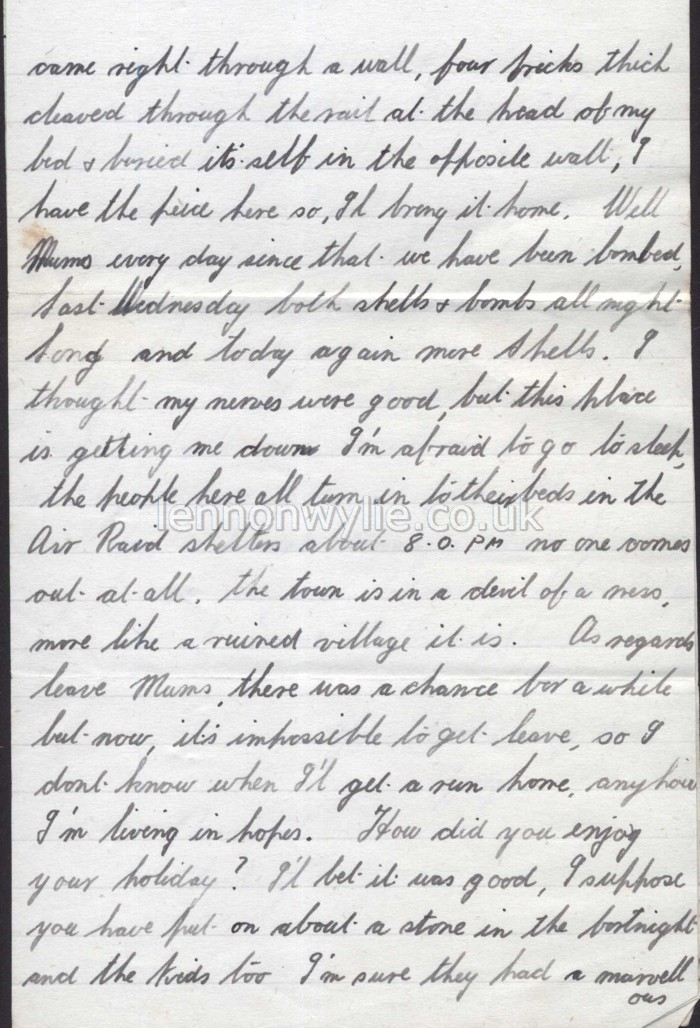 came right through a wall, four bricks thick
cleaved through the rail at the head of my
bed & buried its' self in the opposite wall, I
have the peice here so, I'll bring it home. Well
Mums every day since that we have been bombed,
Last Wednesday both shells & bombs all night
long and today again more shells. I
thought my nerves were good, but this place
is getting me down I'm afraid to go to sleep,
the people here all turn in to their beds in the
lennonwylie.co.uk
Air Raid shelters about 8.0. PM no one comes
out at all. the town is in a devil of a mess,
more like a ruined village it is. As regards
leave Mums, there was a chance for a while
but now, it's impossible to get leave, so I
dont know when I'll get a run home, anyhow
I'm living in hopes. How did you enjoy
your holiday? I'll bet it was good, I suppose
you have put on about a stone in the fortnight
and the kids too I'm sure they had a marvell
ous